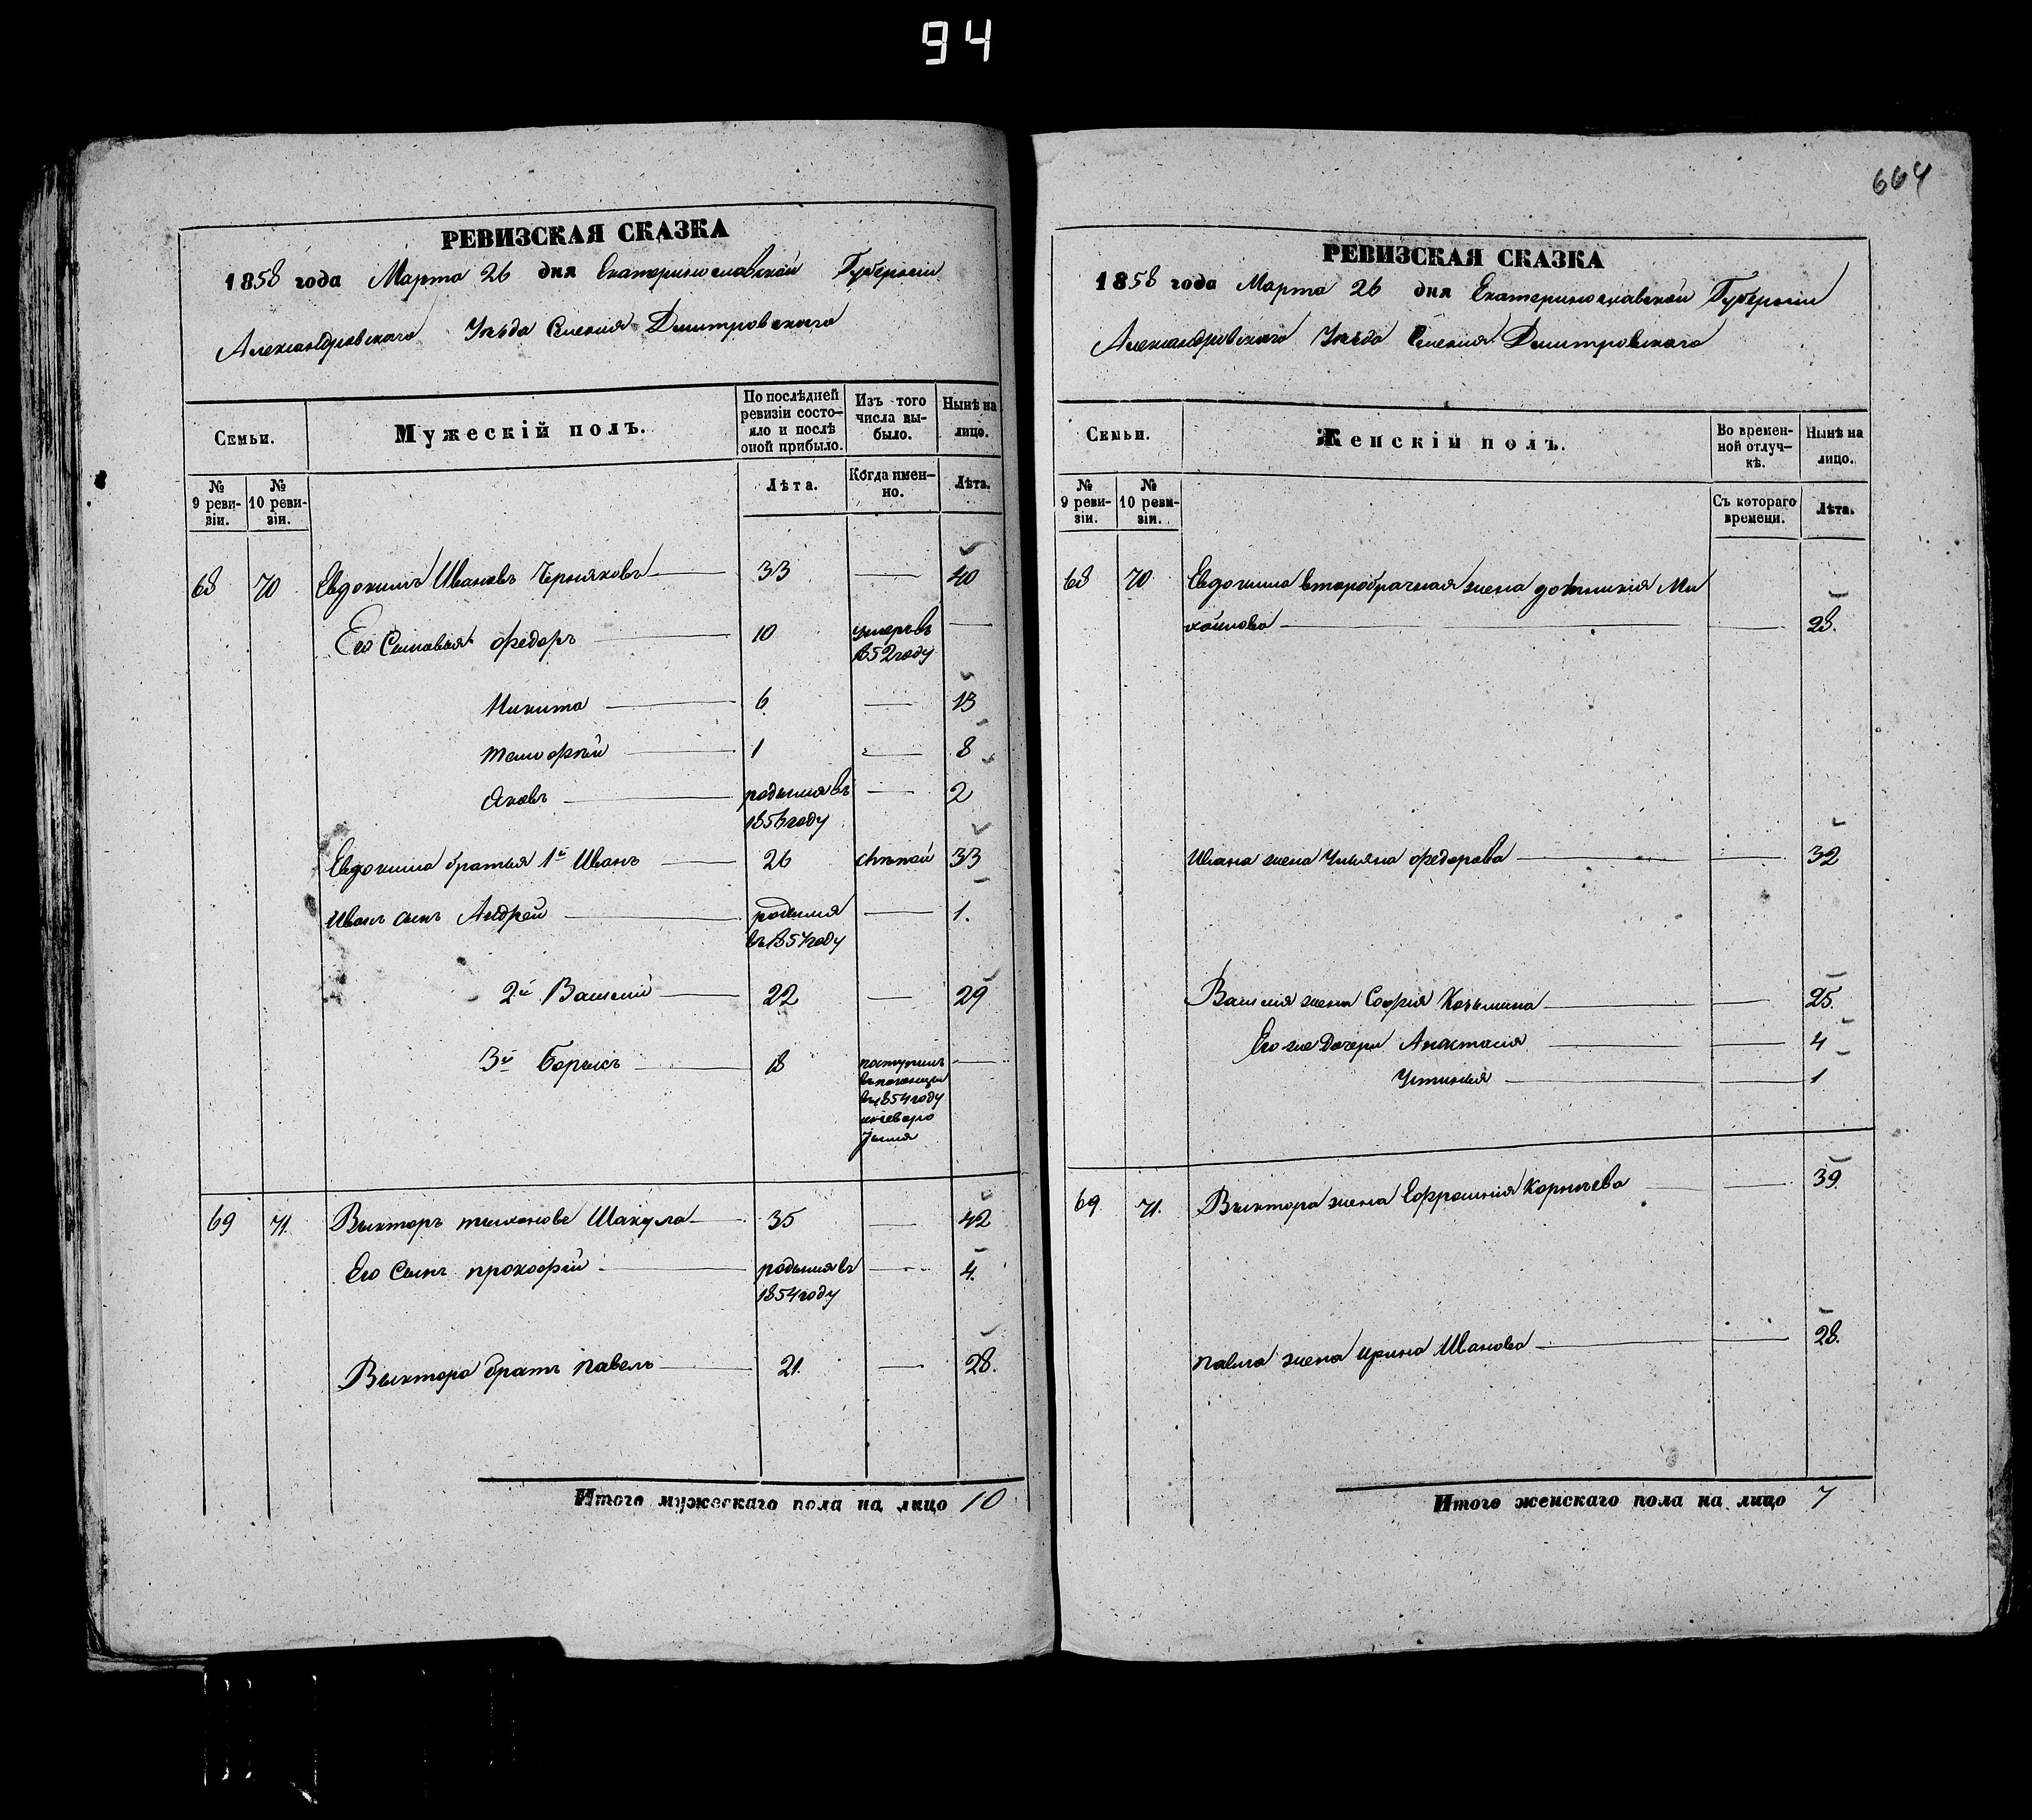 94
664
РЕВИЗСКАЯ СКАЗКА
1858 года Марта 26 дня Екатеринославской Губерніи
Александровского Уезда Селенія Дмитровского
Семьи.
Мужескій полъ.
По послѣдней ревизіи состояло и послѣ оной прибыло.
Изъ того числа выбыло.
Нынѣ на лицо.
№ 9 ревизіи.
№ 10 ревизіи.
Лѣта.
Когда именно.
Лѣта.
68 70 Евдокимъ Ивановъ Черняковъ 33 — 40
Его Сыновья Федоръ 10 умеръ въ 1852 году —
Никита 6 — 13
тимофѣй 1 — 8
Яковъ родился въ 1856 году — 2
Евдокима братья 1й Иванъ 26 слѣпой 33
Иван сынъ Андрей родился въ 1857 году — 1.
2й Василій 22 — 29
3й Борисъ 18 поступилъ в 1854 году —
69 71 Выкторъ тихоновъ Шакула 35 — 42
Его Сынъ прокофій родился въ 1854 году — 4.
Выктора братъ павелъ 21. — 28.
Итого мужескаго пола на лицо 10
РЕВИЗСКАЯ СКАЗКА
1858 года Марта 26 дня Екатеринославской Губерніи
Александровского Уезда Селенія Дмитровского
Семьи.
Женскій полъ.
Во временной отлучкѣ.
Нынѣ на лицо.
№ 9 ревизіи.
№ 10 ревизіи.
Съ котораго времени.
Лѣта.
68 70 Евдокима второбрачная жена домникія Ми
хайлова — — 28.
Ивана жена Ульяна федорова — — 32
Василія жена Софія Козьмина — — 25.
Его же Дочери Анастасія — — 4
Устинья — — 1
69 71. Выктора жена Ефросинія Корнѣева — — 39.
павла жена ирина Иванова — — 28.
Итого женскаго пола на лицо 7